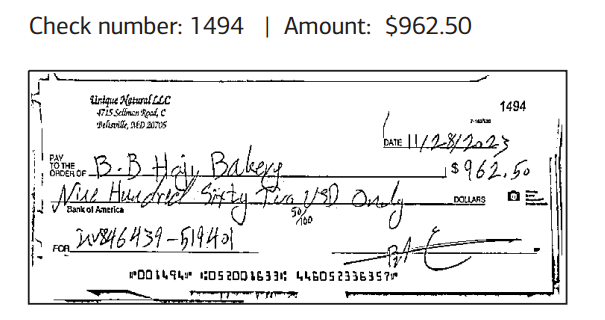 Check number: 1494 | Amount: $962.50
Unique Natural LLC
4715 Sellman Road, C
Beltsville, MD 20705
1494
DATE 11/28/2023
PAY
TO THE
ORDER OF B.B Haji Bakery $ 962.50
Nine Hundred Sixty Two USD Only 50/100 DOLLARS
Bank of America
FOR
⑈001494⑈ ⑆052001633⑆ 446052336357⑈